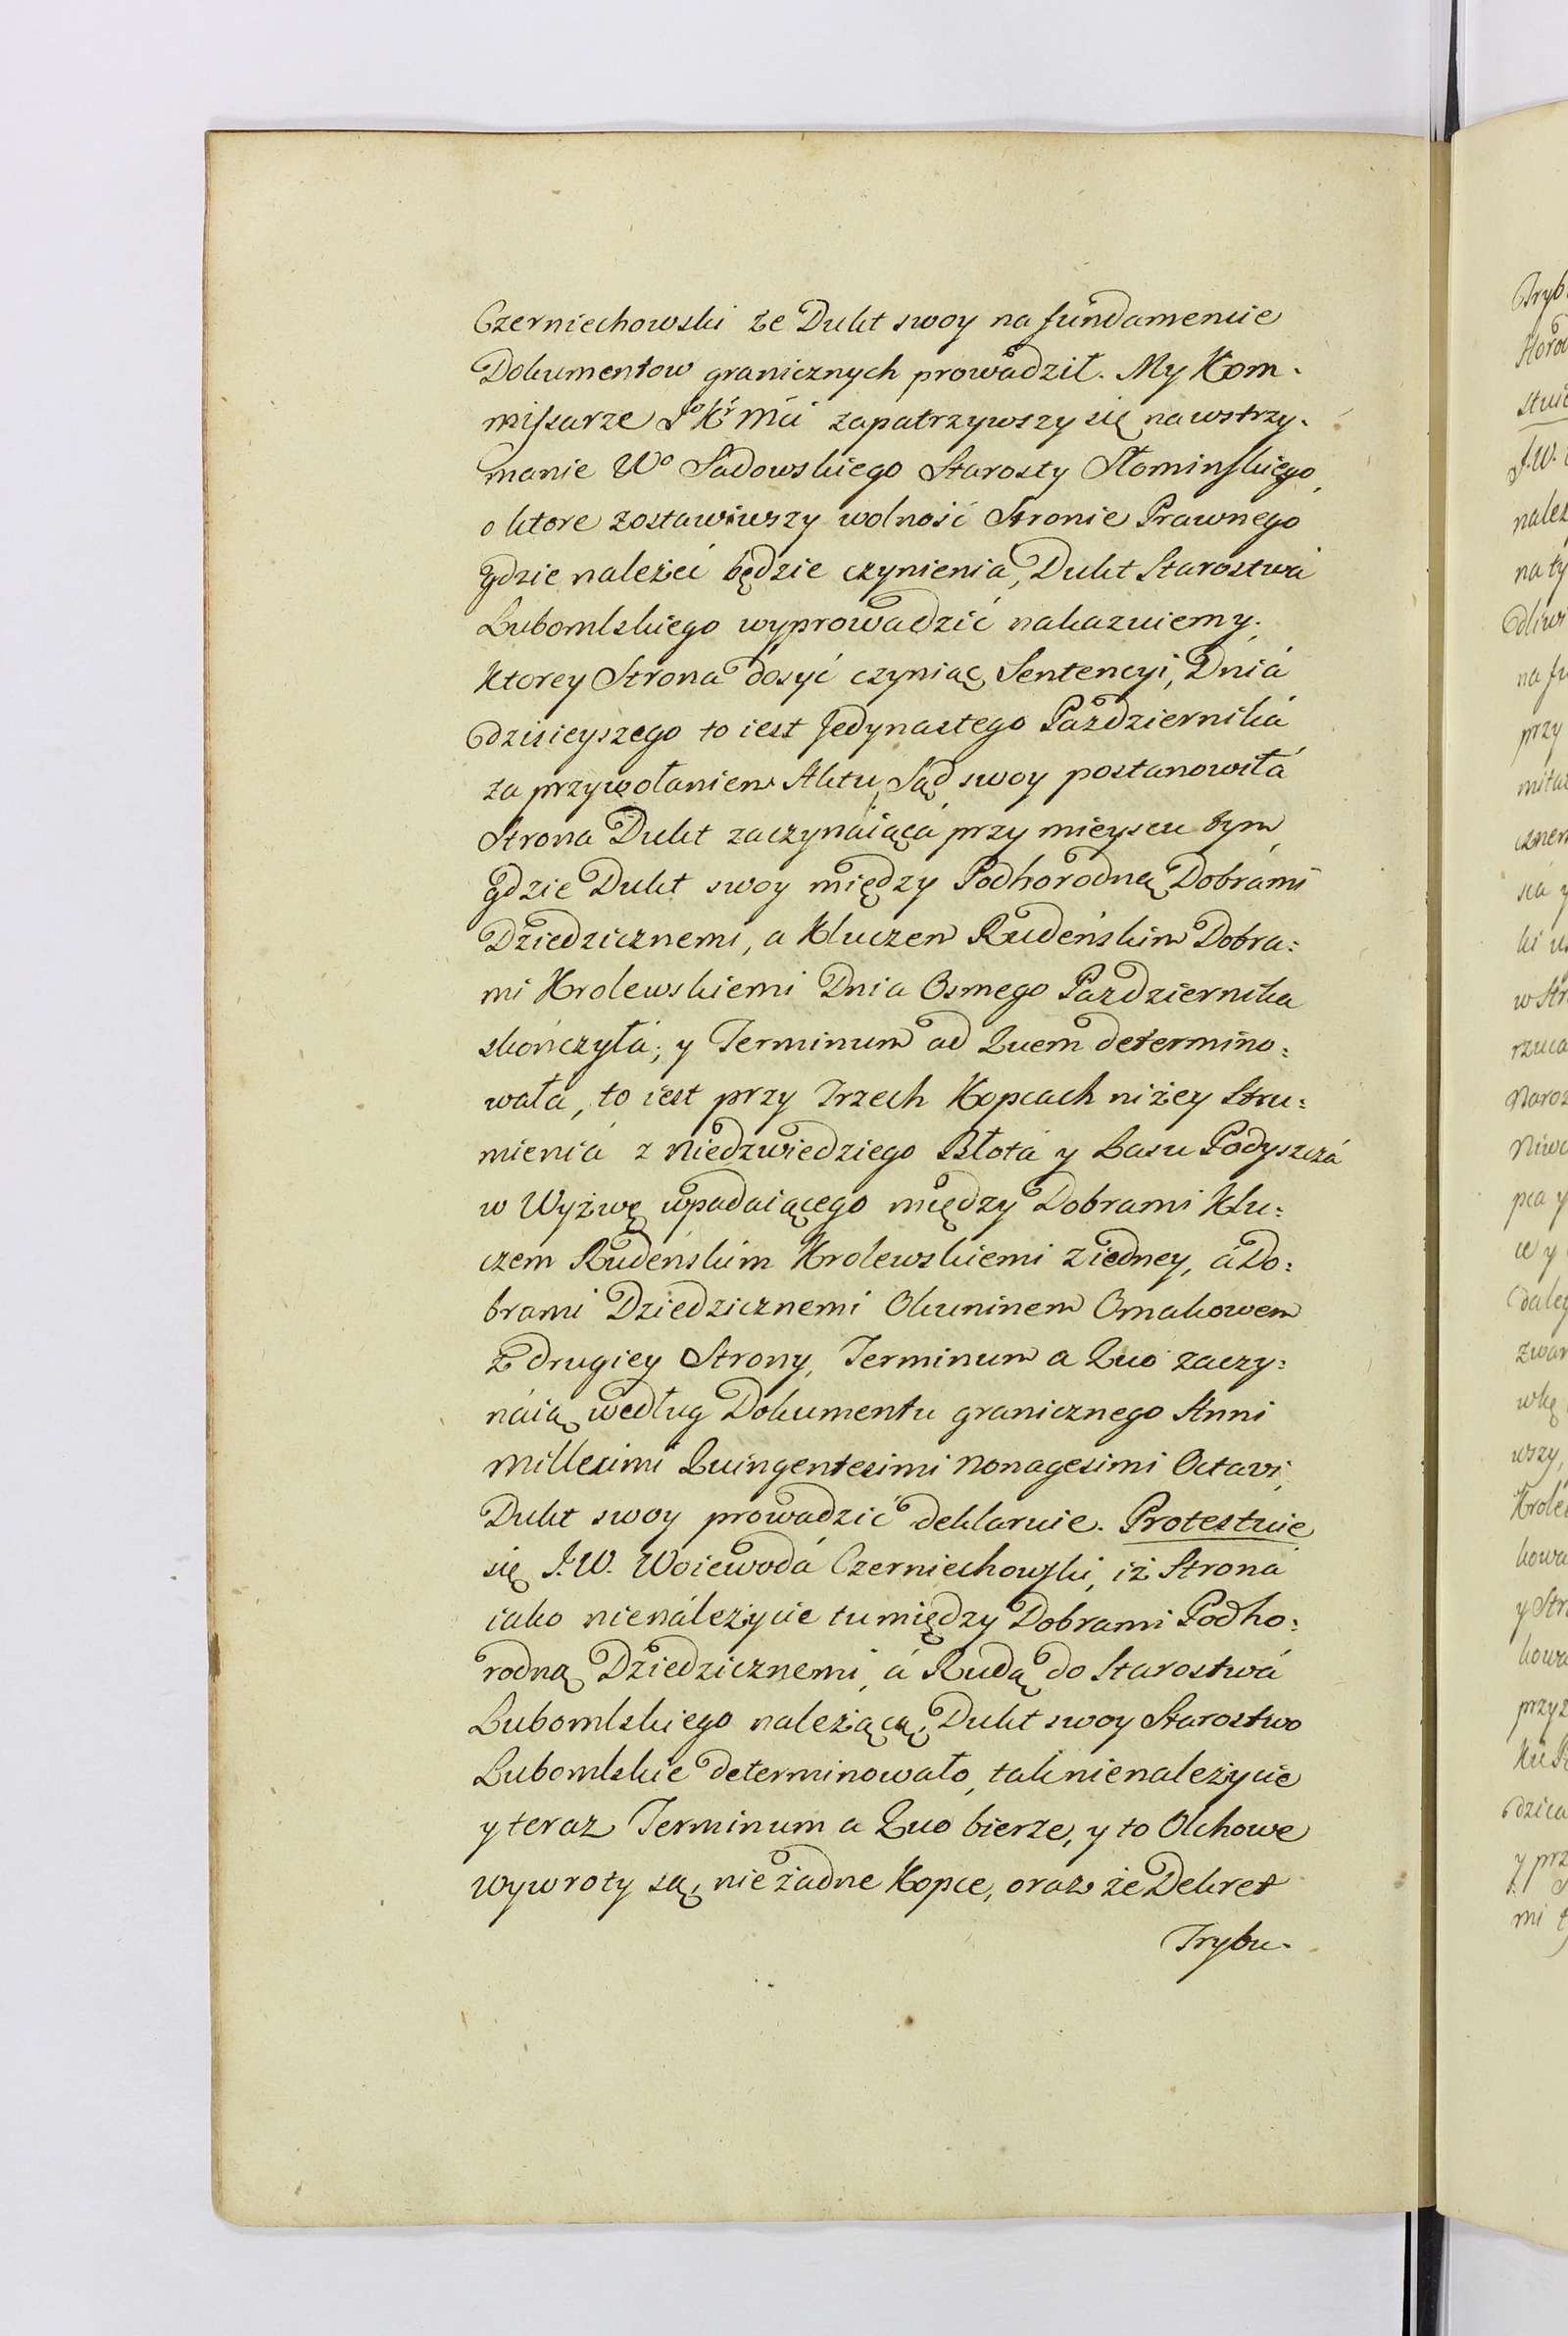 Czerniechowski że Dukt swoy na fundamencie
Dokumentow granicznych prowadził. My Kom-
missarze Jº Kʳ Mći zapatrzywszy się na wstrzy-
manie Wº Sadowskiego Starosty Słominskiego,
o ktore zostawiwszy wolność Stronie Prawnego
gdzie należeć będzie czynienia, Dukt Starostwá
Lubomlskiego wyprowadzić nakazuiemy.
Ktorey Strona dosyć czyniąc Sentencyi, Dniá
dzisieyszego to iest Jedynastego Pazdzierniká
za przywołaniem Aktu, Sąd swoy postanowiłá
Strona Dukt zaczynáiącá przy mieyscu tym,
gdzie Dukt swoy między Podhorodną Dobrámi
Dziedzicznemi, a Kluczem Rudeńskim Dobra:
mi Krolewskiemi Dnia Osmego Pazdziernika
skończyłá; y Terminum ad Quem determino:
wała, to iest przy Trzech Kopcach niżey Stru:
mieniá z Niedzwiedziego Błotá y Lasu Podyszczá
w Wyżwę wpadaiącego między Dobrami Klu:
czem Rudeńskim Krolewskiemi z iedney, á Do:
brami Dziedzicznemi Okuninem Omakowem
z drugiey Strony, Terminum a Quo zaczy:
náią według Dokumentu granicznego Anni
Millesimi Quingentesimi Nonagesimi Octavi,
Dukt swoy prowadzić deklaruie. Protestuie
się J.W. Woiewodá Czerniechowski, iż Stroná
iako nienáleżycie tu między Dobrami Podho:
rodną Dziedzicznemi, á Rudą do Starostwá
Lubomlskiego należącą, Dukt swoy Starostwo
Lubomlskie determinowało, tak nienależycie
y teraz Terminum a Quo bierze, y to Olchowe
wywroty są, nie żadne Kopce, oraz że Dekret
Trybu-